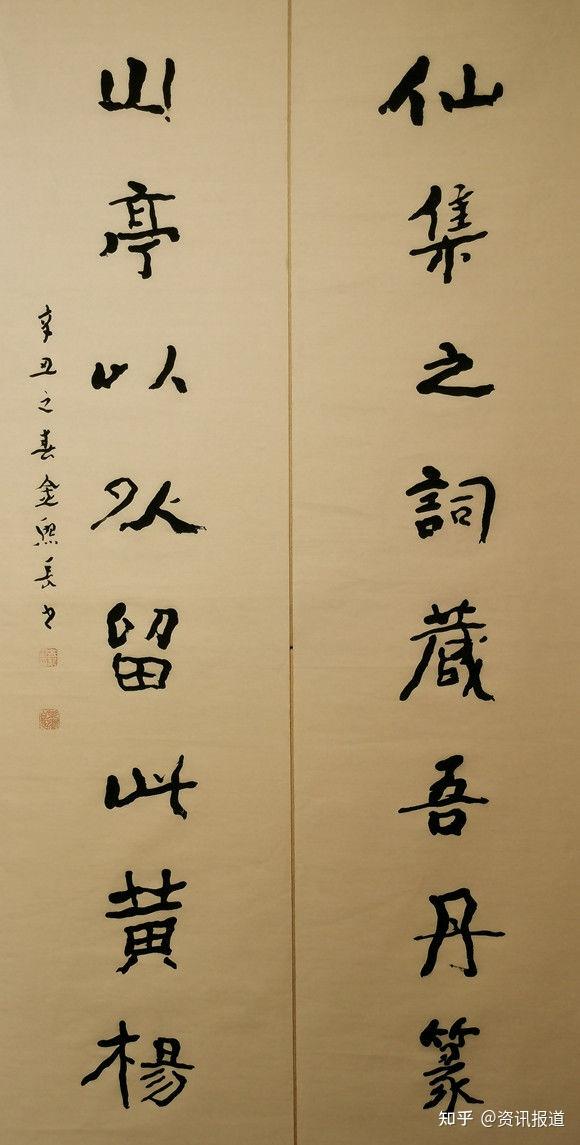 仙集之詞藏吾丹篆
山亭以外留此黃楊
辛丑之春金熙長书
知乎 @资讯报道